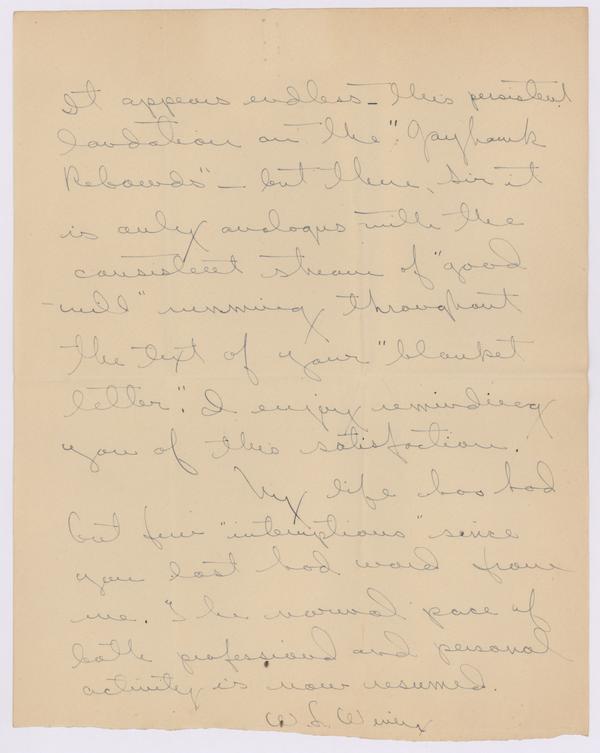 It appears endless - this persistent
laudation on the "Jayhawk
Rebounds" - but then, Sir it
is only analogus with the
consistent stream of "good
-will" running throughout
the text of your "blanket
letter". I enjoy reminding
you of this satisfaction.
My life has had
but few "interuptions" since
you last had word from
me. The normal pace of
both professional and personal
activity is now resumed.
W. L.